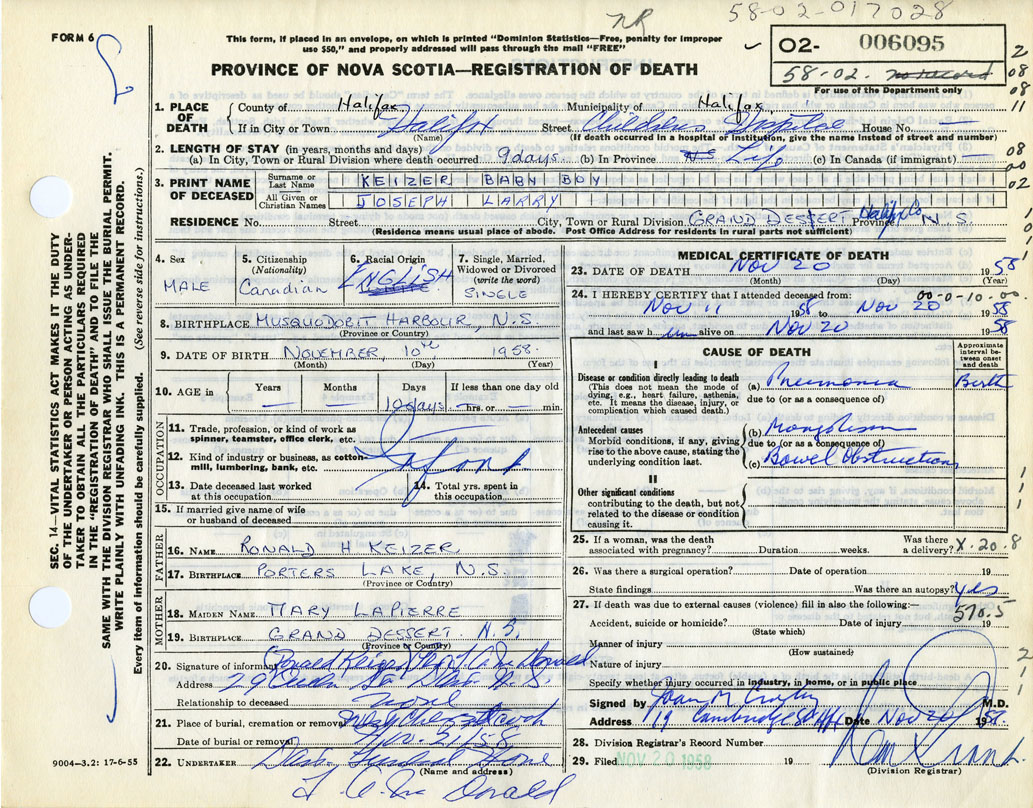 NR 58-02-017028
FORM 6
This form, if placed in an envelope, on which is printed "Dominion Statistics—Free, penalty for improper
use $50," and properly addressed will pass through the mail "FREE"
O2- 006095
58-02. no record
For use of the Department only
PROVINCE OF NOVA SCOTIA—REGISTRATION OF DEATH
2
08
08
11
08
00
02
1. PLACE OF DEATH
County of Halifax Municipality of Halifax
If in City or Town Halifax Street Children's Hospital House No.
(Name) (If death occurred in a hospital or institution, give the name instead of street and number)
2. LENGTH OF STAY (in years, months and days)
(a) In City, Town or Rural Division where death occurred 9 days (b) In Province NS Life (c) In Canada (if immigrant) —
3. PRINT NAME OF DECEASED
Surname or Last Name KEIZER BABY BOY
All Given or Christian Names JOSEPH LARRY
RESIDENCE No. Street City, Town or Rural Division GRAND DESSERT Halifax Co Province N S
(Residence means usual place of abode. Post Office Address for residents in rural parts not sufficient)
SEC. 14—VITAL STATISTICS ACT MAKES IT THE DUTY
OF THE UNDERTAKER OR PERSON ACTING AS UNDER-
TAKER TO OBTAIN ALL THE PARTICULARS REQUIRED
IN THE "REGISTRATION OF DEATH" AND TO FILE THE
SAME WITH THE DIVISION REGISTRAR WHO SHALL ISSUE THE BURIAL PERMIT.
WRITE PLAINLY WITH UNFADING INK. THIS IS A PERMANENT RECORD.
Every item of information should be carefully supplied. (See reverse side for instructions.)
4. Sex
MALE
5. Citizenship
(Nationality)
Canadian
6. Racial Origin
ENGLISH
7. Single, Married,
Widowed or Divorced
(write the word)
SINGLE
8. BIRTHPLACE MUSQUODOBIT HARBOUR, N.S
(Province or Country)
9. DATE OF BIRTH NOVEMBER, 10th 1958.
(Month) (Day) (Year)
10. AGE in
Years Months Days If less than one day old
— — 10 days. — hrs. or — min.
OCCUPATION
11. Trade, profession, or kind of work as
spinner, teamster, office clerk, etc.
12. Kind of industry or business, as cotton-
mill, lumbering, bank, etc. Infant
13. Date deceased last worked
at this occupation
14. Total yrs. spent in
this occupation
15. If married give name of wife
or husband of deceased
FATHER
16. NAME RONALD H KEIZER
17. BIRTHPLACE PORTERS LAKE, N.S.
(Province or Country)
MOTHER
18. MAIDEN NAME MARY LAPIERRE
19. BIRTHPLACE GRAND DESSERT N.S.
(Province or Country)
20. Signature of informant Ronald Keizer
Address 29
Relationship to deceased
21. Place of burial, cremation or removal West Chezzetcook
Date of burial or removal Nov. 21/58
22. UNDERTAKER Dart Funeral Home
(Name and address)
9004—3.2: 17-6-55
MEDICAL CERTIFICATE OF DEATH
23. DATE OF DEATH Nov 20 1958
(Month) (Day) (Year)
24. I HEREBY CERTIFY that I attended deceased from: 00-0-10-00
Nov 11 1958 to Nov 20 1958
and last saw him alive on Nov 20 1958
CAUSE OF DEATH
Approximate
interval be-
tween onset
and death
I
Disease or condition directly leading to death
(This does not mean the mode of
dying, e.g., heart failure, asthenia,
etc. It means the disease, injury, or
complication which caused death.)
(a) Pneumonia Birth
due to (or as a consequence of)
Antecedent causes
Morbid conditions, if any, giving
rise to the above cause, stating the
underlying condition last.
(b) Mongolism
due to (or as a consequence of)
(c) Bowel Obstruction
II
Other significant conditions
contributing to the death, but not
related to the disease or condition
causing it.
25. If a woman, was the death
associated with pregnancy? Duration weeks.
Was there
a delivery? X.20.8
26. Was there a surgical operation? Date of operation 19
State findings Was there an autopsy? yes
27. If death was due to external causes (violence) fill in also the following:—
570.5
Accident, suicide or homicide? Date of injury 19
(State which)
Manner of injury
(How sustained)
Nature of injury
Specify whether injury occurred in industry, in home, or in public place
Signed by Joan M M.D.
Address 19 Cambridge St Hfx Date Nov 20 1958.
28. Division Registrar's Record Number
29. Filed NOV 20 1958 19
(Division Registrar)